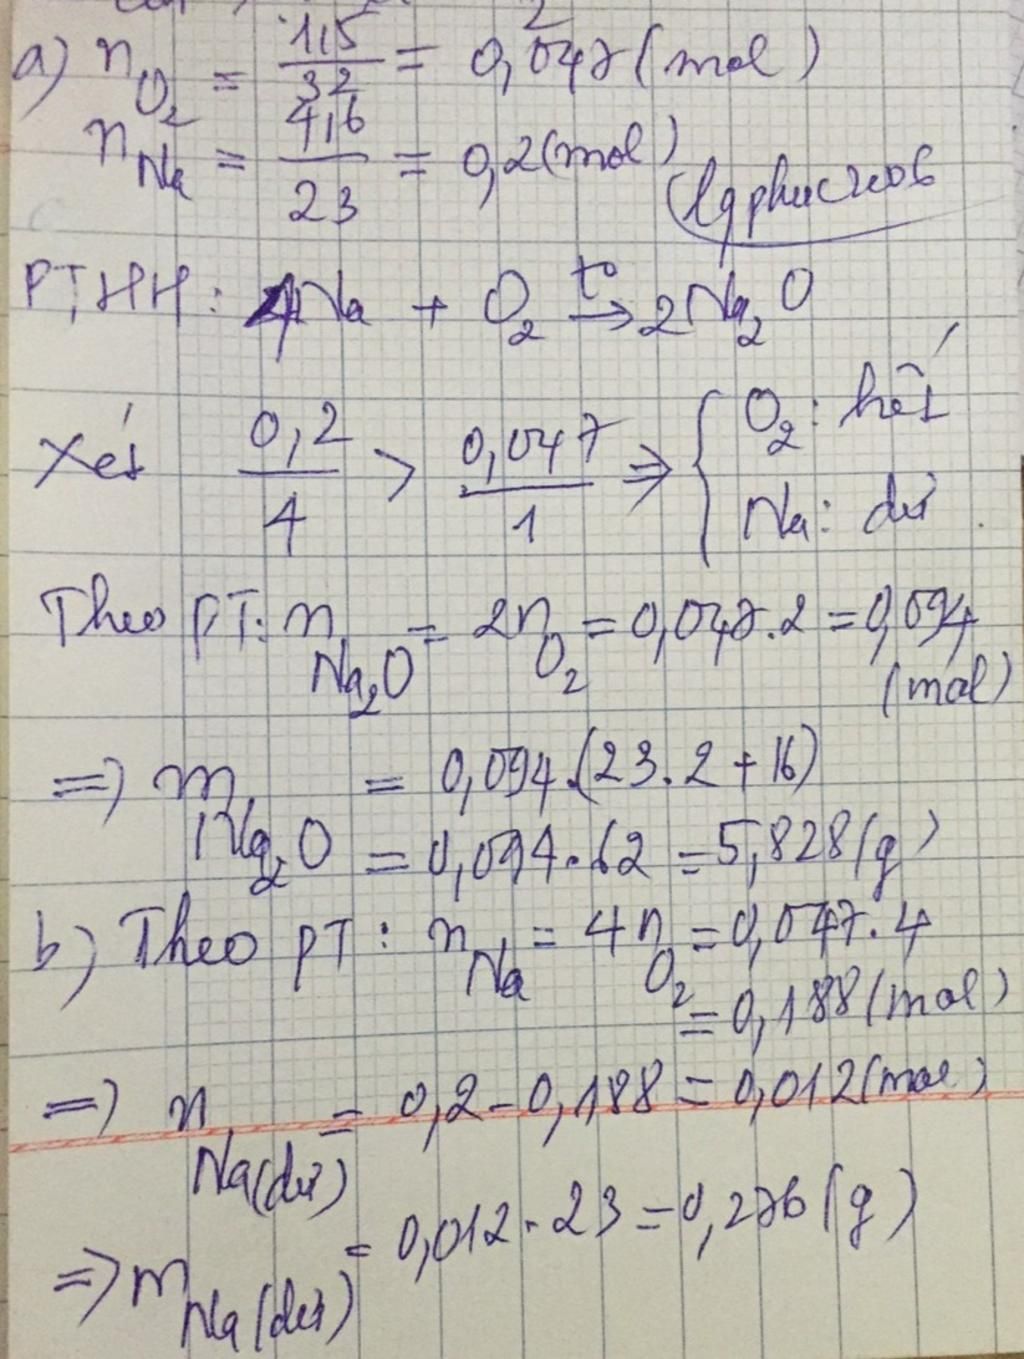 a) n O₂ = 1,5/32 = 0,047 (mol)
n Na = 4,6/23 = 0,2 (mol)
lgphuc2006
PTHH: 4Na + O₂ t°→ 2Na₂O
Xét 0,2/4 > 0,047/1 ⇒ { O₂: hết
Na: dư
Theo PT: n Na₂O = 2n O₂ = 0,047.2 = 0,094
(mol)
=> m Na₂O = 0,094.(23.2+16)
= 0,094.62 = 5,828 (g)
b) Theo PT: n Na = 4n O₂ = 0,047.4
= 0,188 (mol)
=> n Na(dư) = 0,2-0,188 = 0,012 (mol)
=> m Na(dư) = 0,012.23 = 0,276 (g)